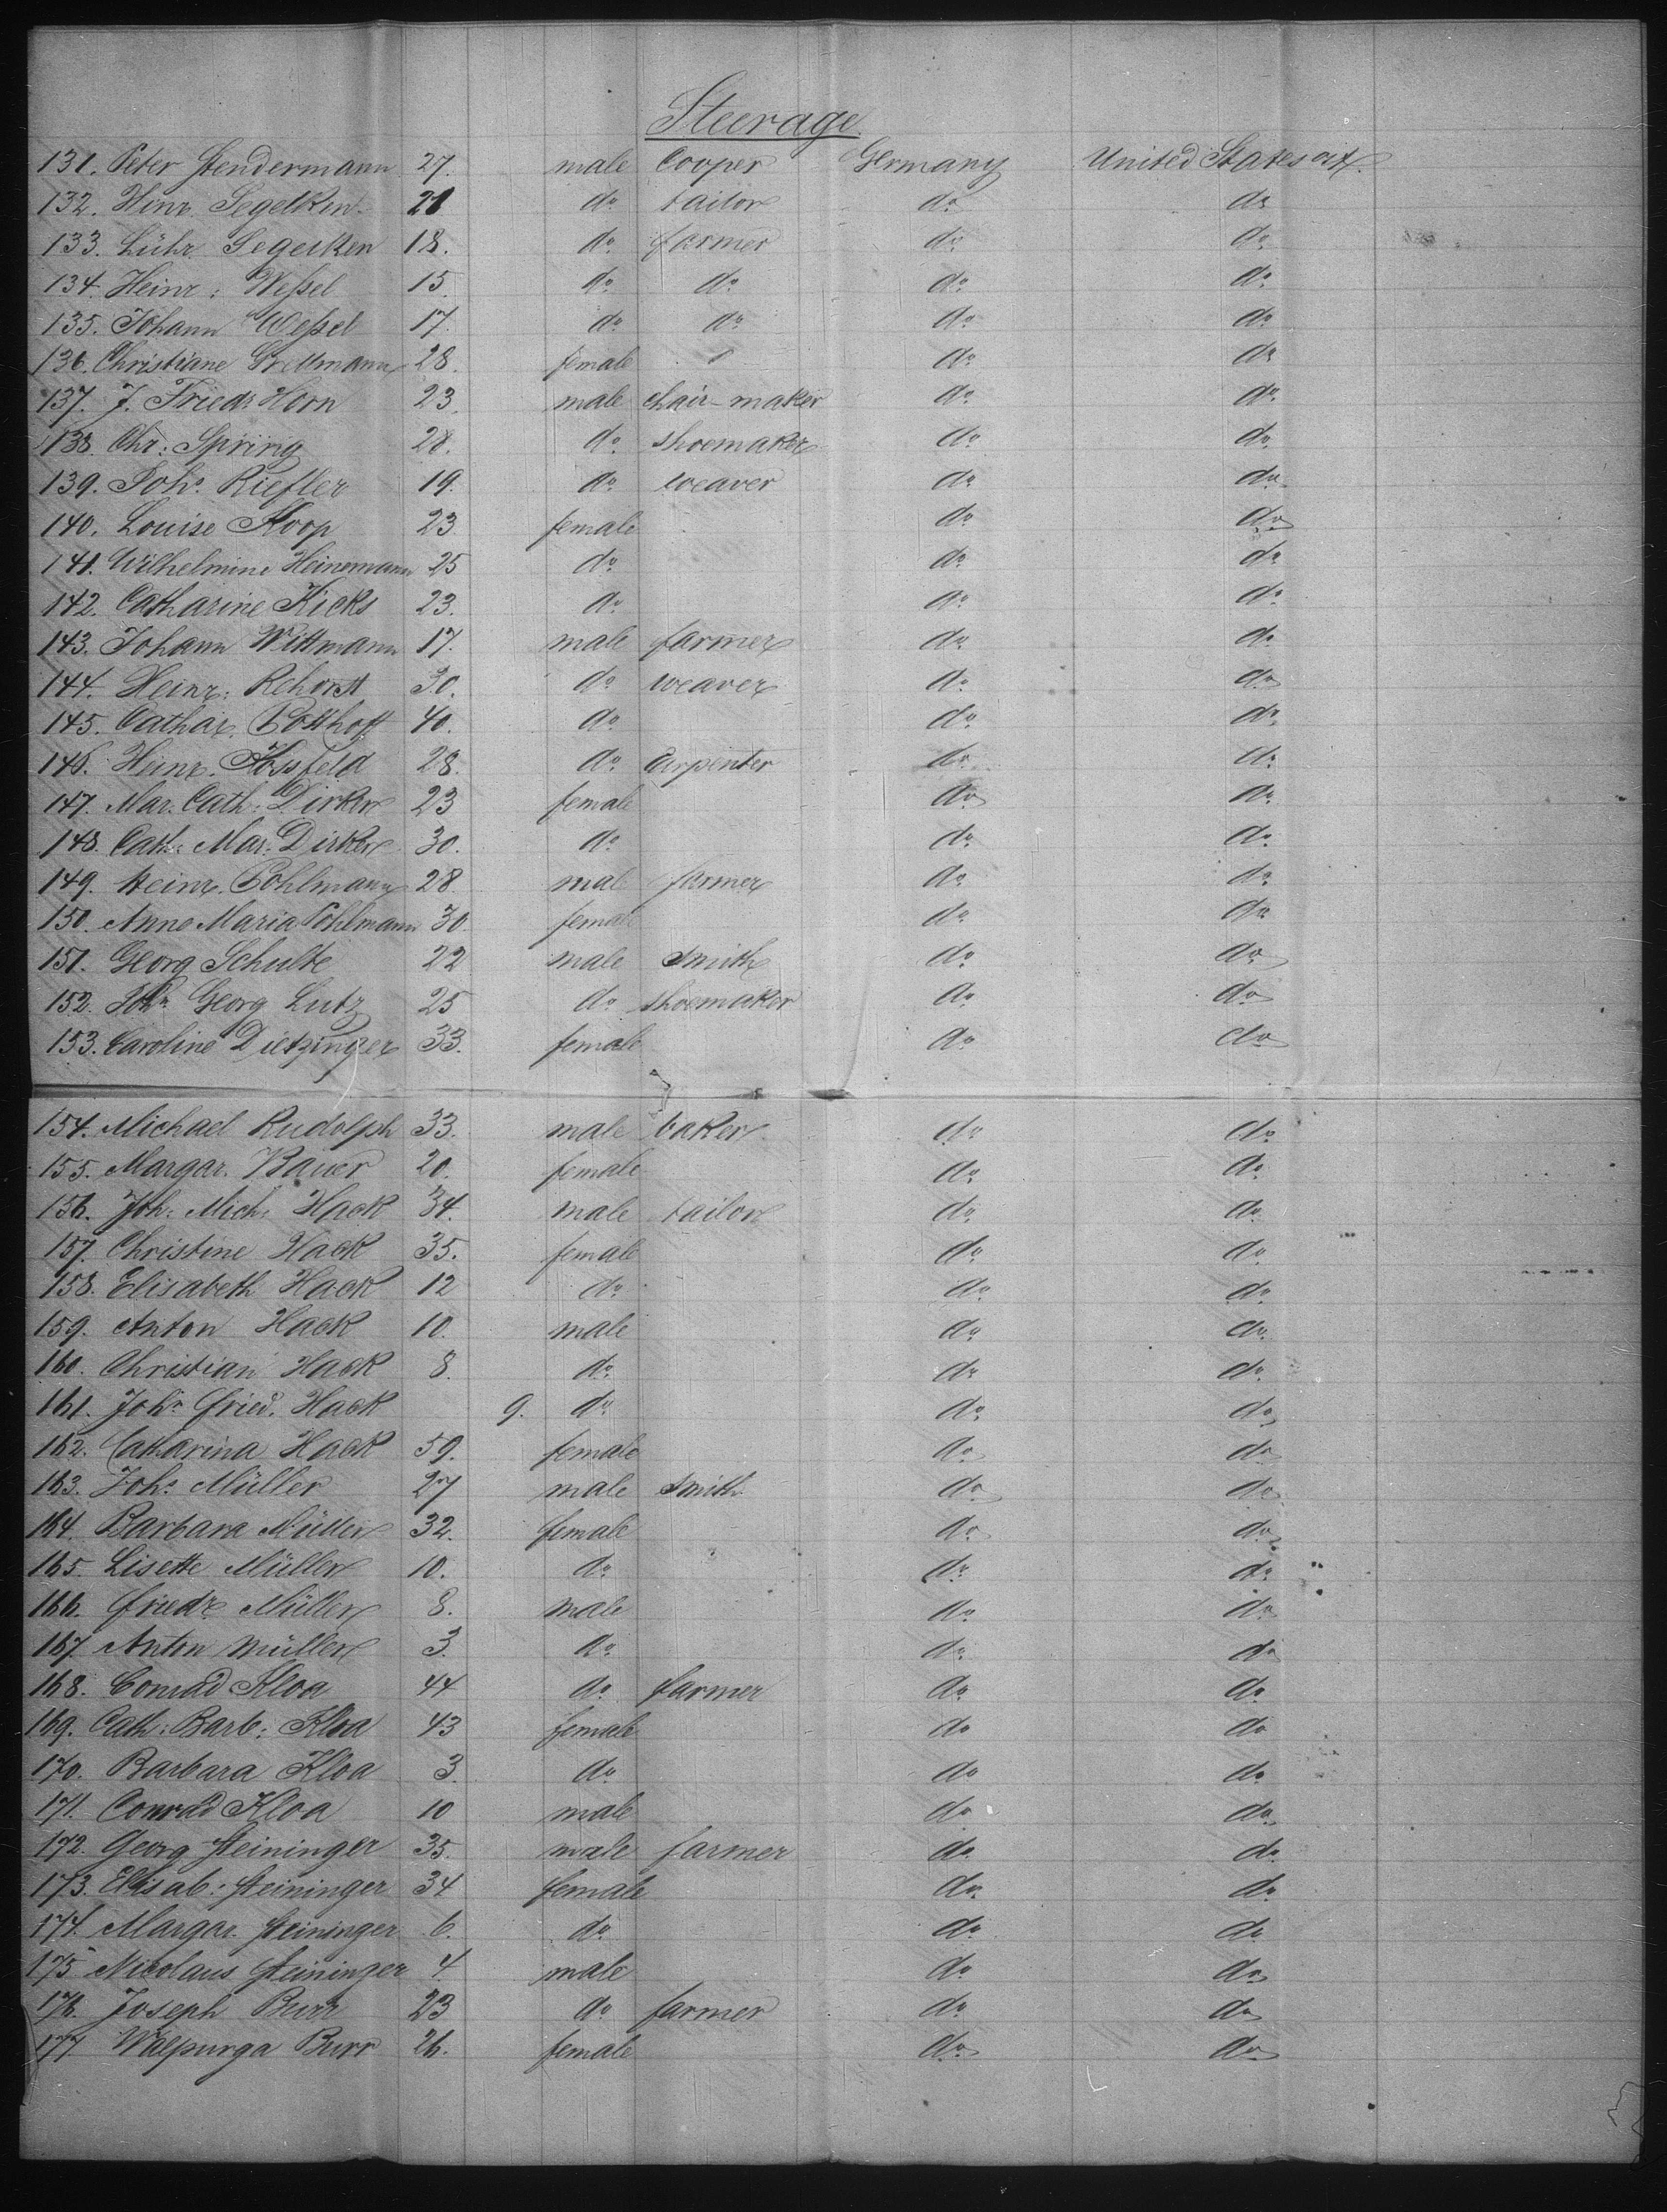 Steerage.
131. Peter Stendermann 27. male Cooper Germany United States
132. Hinr. Segelken 21 do tailor do do
133. Lühr Segelken 18. do farmer do do
134. Heinr: Weßel 15. do do do do
135. Johann Weßel 17. do do do do
136. Christiane 28. female do do
137. J. Friedr. Horn 23. male chair-maker do do
138. Chr: Spring 28. do shoemaker do do
139. Joh. Riefler 19. do weaver do do
140. Louise Koop 23 female do do
141. Wilhelmine Heinemann 25 do do do
142. Catharine Hicks 23. do do do
143. Johann Wittmann 17. male farmer do do
144. Heinr: Rehorst 30. do weaver do do
145. Cathar. Potthoff 40. do do do
146. Heinr. Hossfeld 28. do Carpenter do do
147. Mar. Cath. Dirker 23 female do do
148. Cath. Mar. Dirker 30. do do do
149. Heinr. Pohlmann 28 male farmer do do
150. Anne Maria Pohlmann 30. female do do
151. Georg Schulte 22 male smith do do
152. Joh. Georg Lutz 25 do shoemaker do do
153. Caroline Dietzinger 33. female do do
154. Michael Rudolph 33. male baker do do
155. Margar. Bauer 20. female do do
156. Joh. Mich. Hack 34. male tailor do do
157. Christine Hack 35. female do do
158. Elisabeth Hack 12 do do do
159. Anton Hack 10. male do do
160. Christian Hack 8. do do do
161. Joh. Fried. Hack 9. do do do
162. Catharina Hack 59. female do do
163. Joh. Müller 27 male smith do do
164. Barbara Müller 32. female do do
165. Lisette Müller 10. do do do
166. Friedr. Müller 8. male do do
167. Anton Müller 3. do do do
168. Conrad Kloa 44 do farmer do do
169. Cath: Barb: Kloa 43 female do do
170. Barbara Kloa 3. do do do
171. Conrad Kloa 10 male do do
172. Georg Steininger 35. male farmer do do
173. Elisab: Steininger 34 female do do
174. Margar. Steininger 6. do do do
175 Nicolaus Steininger 4. male do do
176. Joseph Burr 23 do farmer do do
177 Walpurga Burr 26. female do do